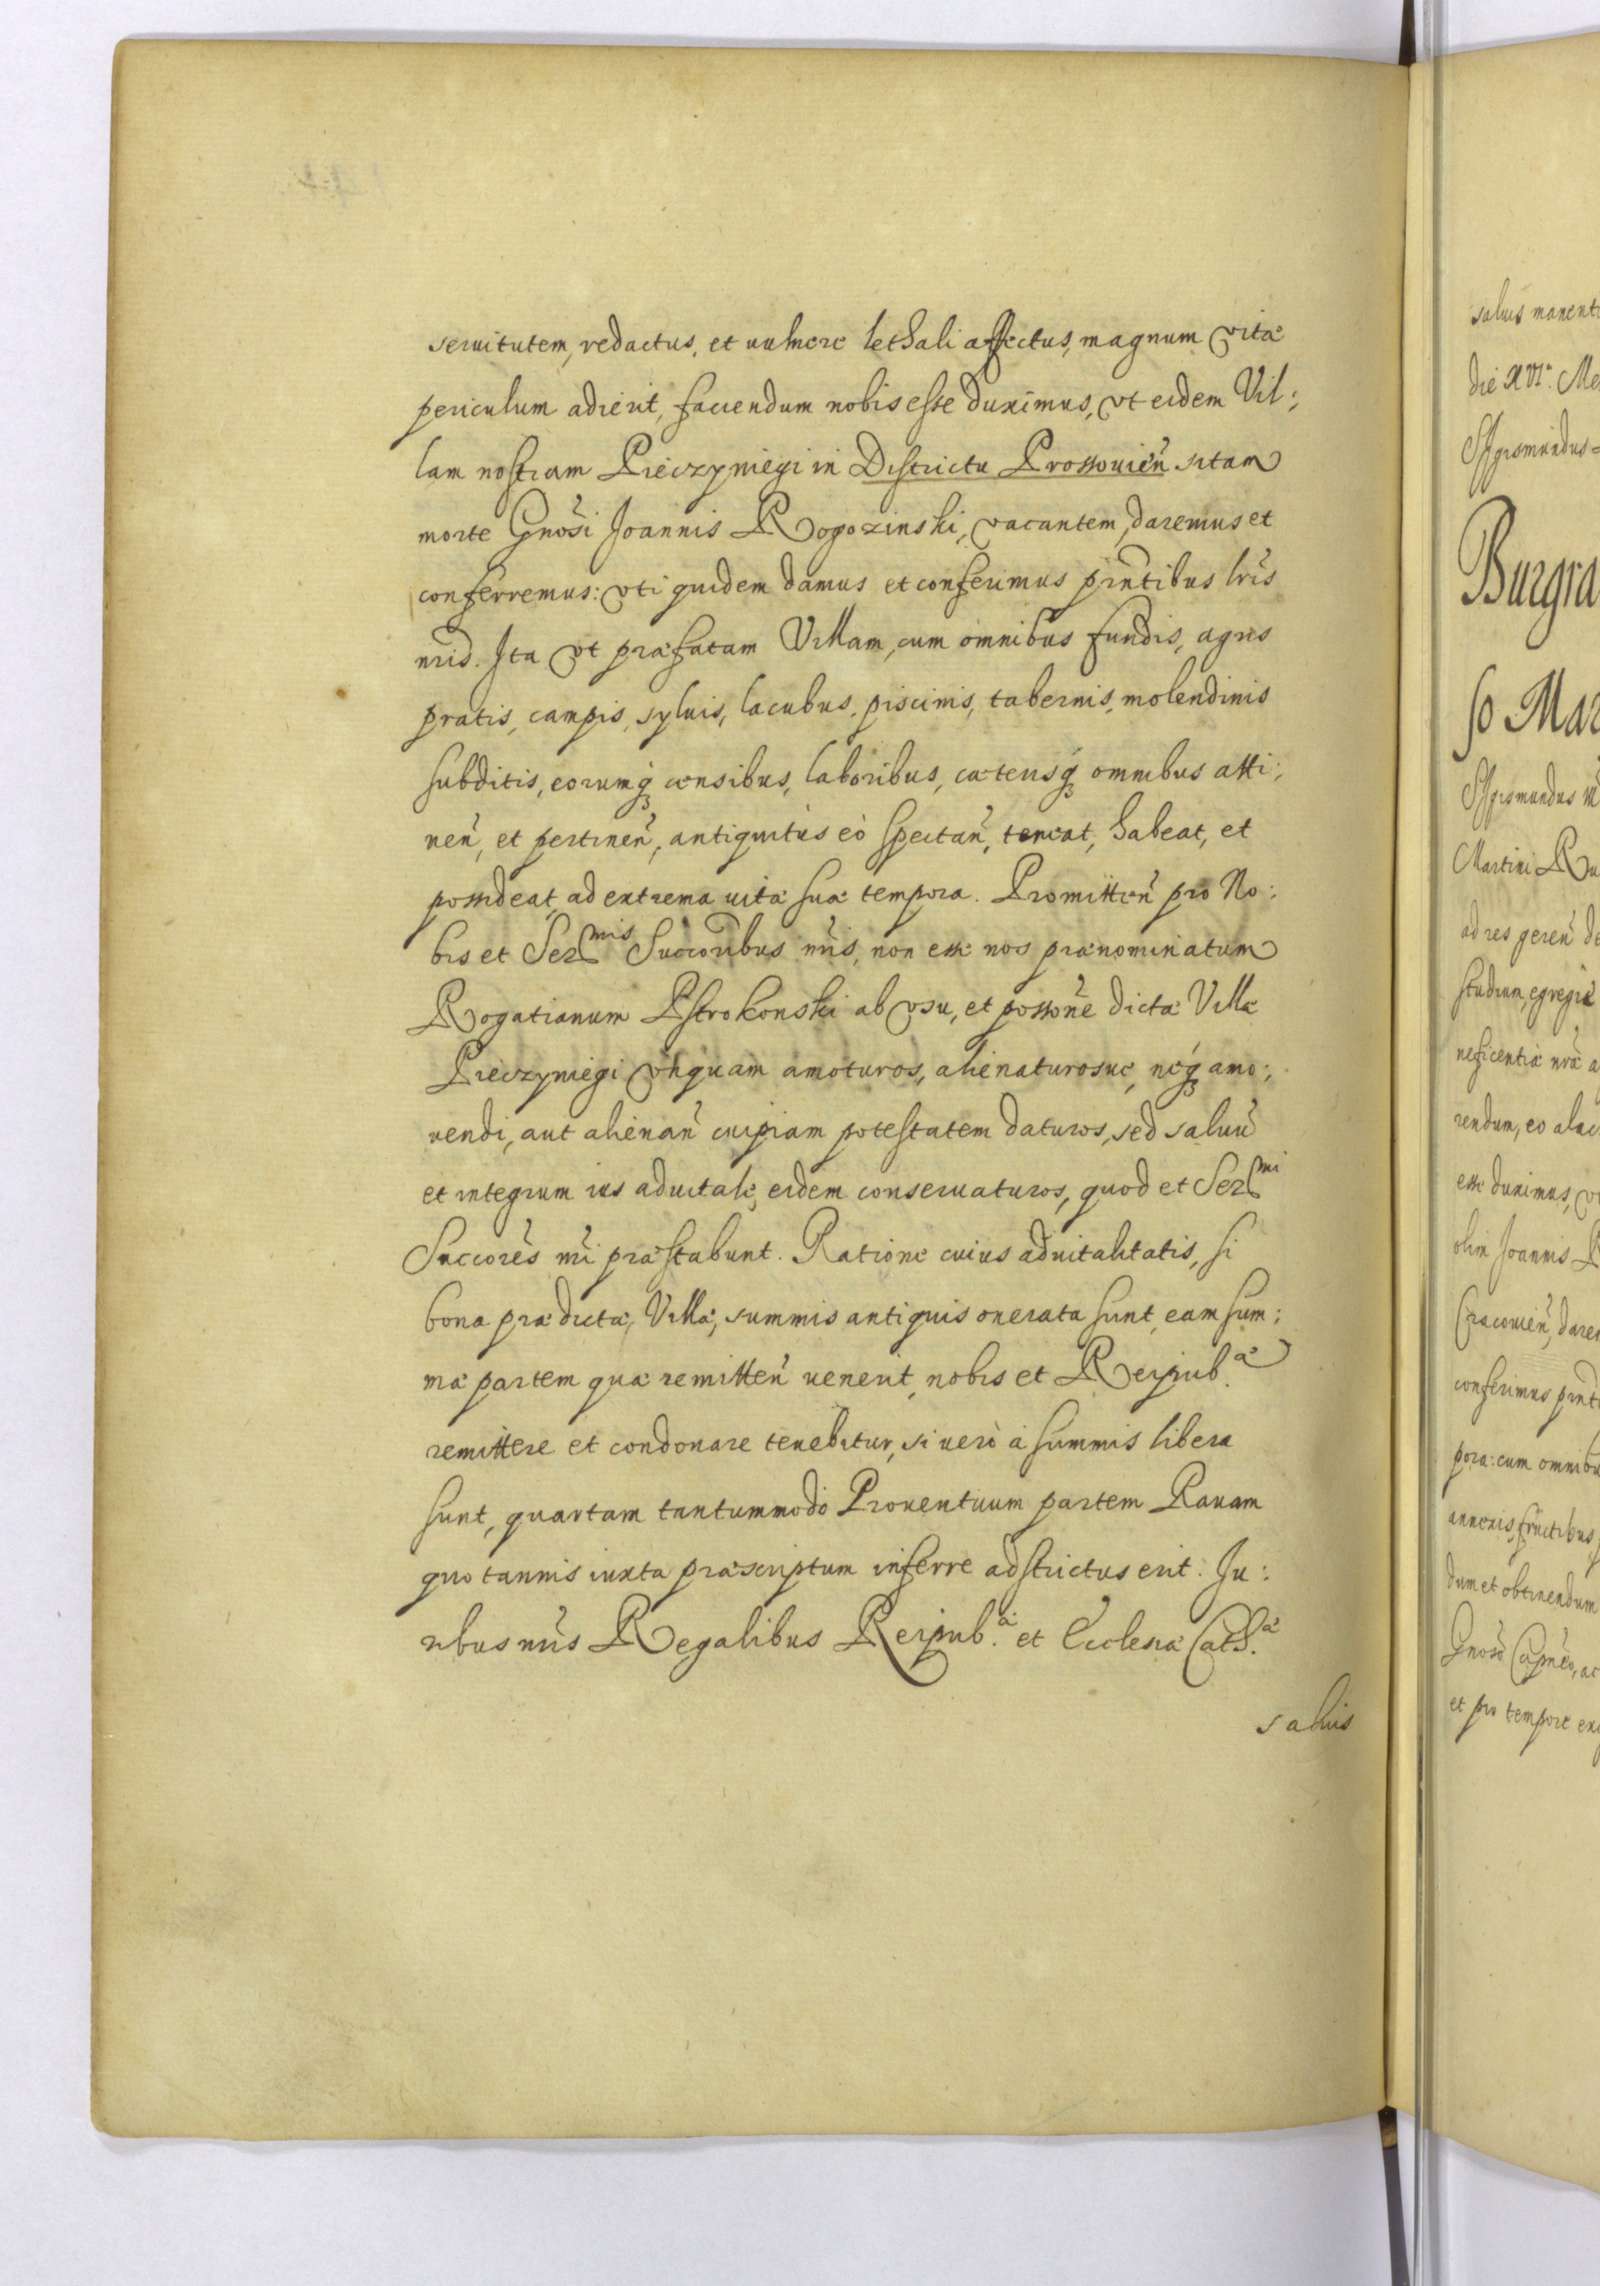 seruitutem, redactus, et uulnere lethali affectus, magnum vitæ
periculum adierit, faciendum nobis esse duximus, vt eidem Vil:
lam nostram Pieczyniegi in Districtu Prossouien̄ sitam
morte Gnōsi Joannis Rogozinski, vacantem, daremus et
conferremus: vti quidem damus et conferimus pn̄tibus lrīs
nrīs. Ita vt præfatam Villam, cum omnibus fundis, agris
pratis, campis, syluis, lacubus, piscinis, tabernis, molendinis
subditis, eorumq̢ censibus, laboribus, cæterisq̢ omnibus atti:
nen̄, et pertinen̄, antiquitùs eò spectan̄, teneat, habeat, et
possideat, ad extrema uitæ suæ tempora. Promitten̄ pro No:
bis et Ser^mis Succōribus nrīs, non esse nos prænominatum
Rogatianum Ostrokonski ab vsu, et possōne dictæ Villæ
Pieczyniegi vnquam amoturos, alienaturosue, neq̢ amo:
uendi, aut alienan̄ cuipiam potestatem daturos, sed saluū
et integrum ius aduitale, eidem conseruaturos, quod et Ser^mi
Succōres nrī præstabunt. Ratione cuius aduitalitatis, si
bona prædictæ, Villæ, summis antiquis onerata sunt, eam sum:
mæ partem quæ remitten̄ uenerit, nobis et Reipub^æ.
remittere et condonare tenebitur, si uerò à summis libera
sunt, quartam tantummodò Prouentuum partem Rauam
quotannis iuxta præscriptum inferre adstrictus erit. Iu:
ribus nrīs Regalibus Reipub.^æ et Ecclesiæ Cath.^æ
saluis
salus manent
die XVI^a. Me
Sigismundus
Burgra
so Mar
Sigismundus
Martini Ru
ad res geren̄ de
studium, egregiè
neficentiæ nræ a
rendum, eo alac
esse duximus, vt
olim Joannis R
Cracouien̄, dare
conferimus pnt
pora: cum omnibu
annexis, fructibus
dum et obtinendum
Gnōso Capnēo, ac
et pro tempore exi